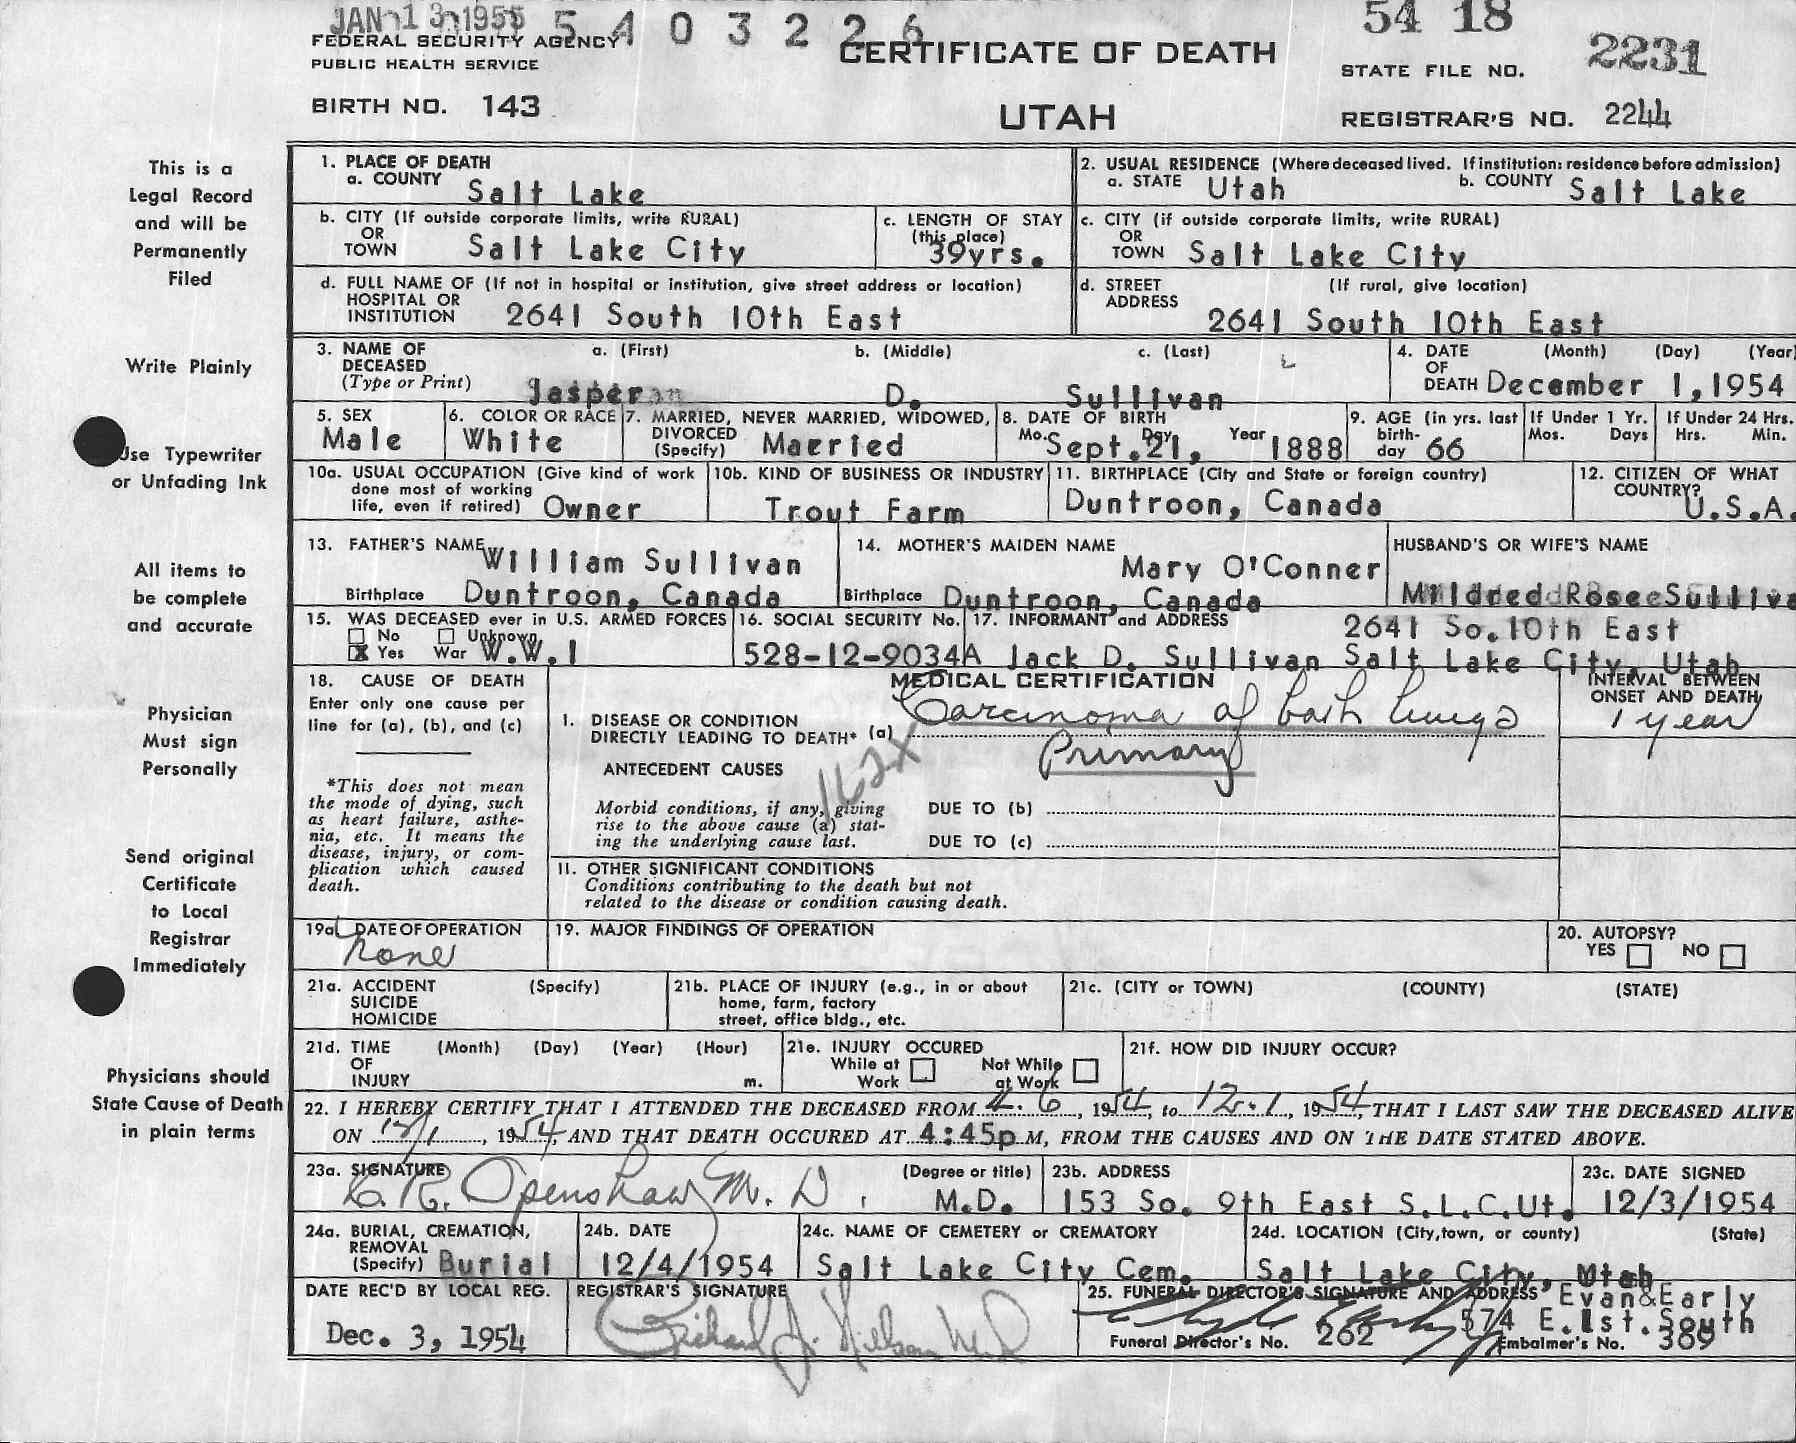 JAN 13 1955 5 4 0 3 2 2 6 54 18
FEDERAL SECURITY AGENCY
PUBLIC HEALTH SERVICE
CERTIFICATE OF DEATH
STATE FILE NO. 2231
BIRTH NO. 143
UTAH
REGISTRAR'S NO. 2244
This is a
Legal Record
and will be
Permanently
Filed
Write Plainly
Use Typewriter
or Unfading Ink
All items to
be complete
and accurate
Physician
Must sign
Personally
Send original
Certificate
to Local
Registrar
Immediately
Physicians should
State Cause of Death
in plain terms
1. PLACE OF DEATH
a. COUNTY Salt Lake
2. USUAL RESIDENCE (Where deceased lived. If institution: residence before admission)
a. STATE Utah b. COUNTY Salt Lake
b. CITY (If outside corporate limits, write RURAL)
OR
TOWN Salt Lake City
c. LENGTH OF STAY
(this place)
39yrs.
c. CITY (if outside corporate limits, write RURAL)
OR
TOWN Salt Lake City
d. FULL NAME OF (If not in hospital or institution, give street address or location)
HOSPITAL OR
INSTITUTION 2641 South 10th East
d. STREET (If rural, give location)
ADDRESS
2641 South 10th East
3. NAME OF a. (First) b. (Middle) c. (Last)
DECEASED
(Type or Print) Jasper D. Sullivan
4. DATE (Month) (Day) (Year)
OF
DEATH December 1, 1954
5. SEX
Male
6. COLOR OR RACE
White
7. MARRIED, NEVER MARRIED, WIDOWED,
DIVORCED
(Specify) Married
8. DATE OF BIRTH
Mo. Day Year
Sept. 21, 1888
9. AGE (in yrs. last
birth-
day 66
If Under 1 Yr.
Mos. Days
If Under 24 Hrs.
Hrs. Min.
10a. USUAL OCCUPATION (Give kind of work
done most of working
life, even if retired) Owner
10b. KIND OF BUSINESS OR INDUSTRY
Trout Farm
11. BIRTHPLACE (City and State or foreign country)
Duntroon, Canada
12. CITIZEN OF WHAT
COUNTRY?
U.S.A.
13. FATHER'S NAME William Sullivan
Birthplace Duntroon, Canada
14. MOTHER'S MAIDEN NAME
Mary O'Conner
Birthplace Duntroon, Canada
HUSBAND'S OR WIFE'S NAME
Mildred Rose Sulliva
15. WAS DECEASED ever in U.S. ARMED FORCES
No Unknown
X Yes War W.W.I
16. SOCIAL SECURITY No.
528-12-9034A
17. INFORMANT and ADDRESS 2641 So. 10th East
Jack D. Sullivan Salt Lake City, Utah
18. CAUSE OF DEATH
Enter only one cause per
line for (a), (b), and (c)
*This does not mean
the mode of dying, such
as heart failure, asthe-
nia, etc. It means the
disease, injury, or com-
plication which caused
death.
MEDICAL CERTIFICATION
INTERVAL BETWEEN
ONSET AND DEATH
1. DISEASE OR CONDITION
DIRECTLY LEADING TO DEATH* (a) Carcinoma of both lungs 1 year
Primary
162X
ANTECEDENT CAUSES
Morbid conditions, if any, giving
rise to the above cause (a) stat-
ing the underlying cause last.
DUE TO (b)
DUE TO (c)
11. OTHER SIGNIFICANT CONDITIONS
Conditions contributing to the death but not
related to the disease or condition causing death.
19a. DATE OF OPERATION
None
19. MAJOR FINDINGS OF OPERATION
20. AUTOPSY?
YES NO
21a. ACCIDENT (Specify)
SUICIDE
HOMICIDE
21b. PLACE OF INJURY (e.g., in or about
home, farm, factory
street, office bldg., etc.
21c. (CITY or TOWN) (COUNTY) (STATE)
21d. TIME (Month) (Day) (Year) (Hour)
OF
INJURY m.
21e. INJURY OCCURED
While at Not While
Work at Work
21f. HOW DID INJURY OCCUR?
22. I HEREBY CERTIFY THAT I ATTENDED THE DECEASED FROM 4-6, 1954, to 12-1, 1954 THAT I LAST SAW THE DECEASED ALIVE
ON 12/1, 1954, AND THAT DEATH OCCURED AT 4:45p M, FROM THE CAUSES AND ON THE DATE STATED ABOVE.
23a. SIGNATURE (Degree or title)
R. Openshaw M.D. M.D.
23b. ADDRESS
153 So. 9th East S.L.C.Ut.
23c. DATE SIGNED
12/3/1954
24a. BURIAL, CREMATION,
REMOVAL
(Specify) Burial
24b. DATE
12/4/1954
24c. NAME OF CEMETERY or CREMATORY
Salt Lake City Cem.
24d. LOCATION (City, town, or county) (State)
Salt Lake City, Utah
DATE REC'D BY LOCAL REG.
Dec. 3, 1954
REGISTRAR'S SIGNATURE
Richard J. Nielsen M.D
25. FUNERAL DIRECTOR'S SIGNATURE AND ADDRESS Evan&Early
574 E.1st.South
Funeral Director's No. 262 Embalmer's No. 389